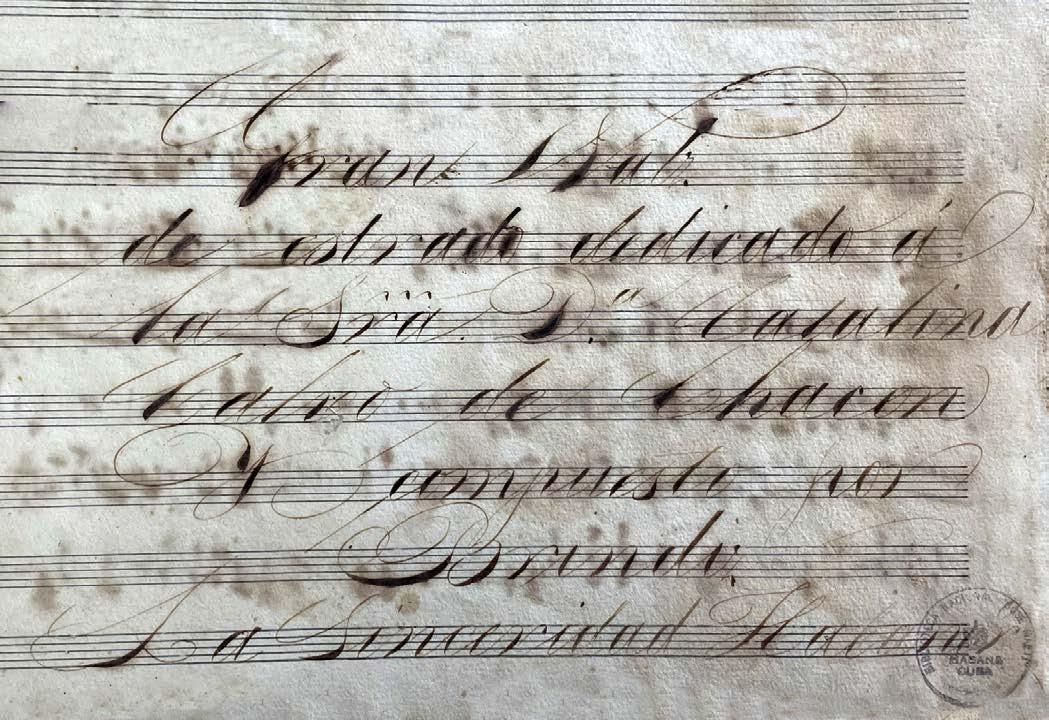 Gran Vals
de estrado dedicado á
la Sra. Da. Catalina
Calvo de Chacon
Y Compuesto por
Brindis
La Sinceridad Habana
BIBLIOTECA NACIONAL JOSE MARTI
HABANA
CUBA